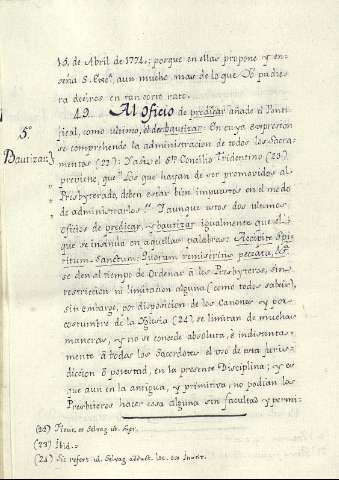 15. de Abril de 1774.; porque en ellas propone y en-
seña S. Exc.ª, aun mucho mas de lo que Yo pudie-
ra deciros en tan corto rato.
49. Al Oficio de predicar añade el Ponti-
fical, como ultimo, el de bautizar: En cuya expresion
se comprehende la administracion de todos los Sacra-
mentos (22): Y así el Sto. Concilio Tridentino (23)
previene, que "Los que hayan de ser promovidos al
" Presbyterado, deben estar bien impuestos en el modo
" de administrarlos." Y aunque estos dos ultimos
oficios de predicar, y bautizar igualmente que el
que se insinúa en aquellas palabras: Accipite Spi-
ritum-Sanctum: Quorum remiseritis peccata, &ª.
se den al tiempo de Ordenar á los Presbyteros, sin
restriccion ni limitacion alguna (como todos saben),
sin embargo, por disposicion de los Canones y por
costumbre de la Iglesia (24) se limitan de muchas
maneras, y no se concede absoluta, è indistinta-
mente á todos los Sacerdotes el uso de esta juris-
diccion ó potestad, en la presente Disciplina; y es
que aun en la antigua, y primitiva, no podian los
Presbiteros hacer cosa alguna sin facultad y permi-
5º
Bautizar.
(22) et Selvag. ub. supr.
(23) Ibid.
(24) Sic refert ub. Selvag.